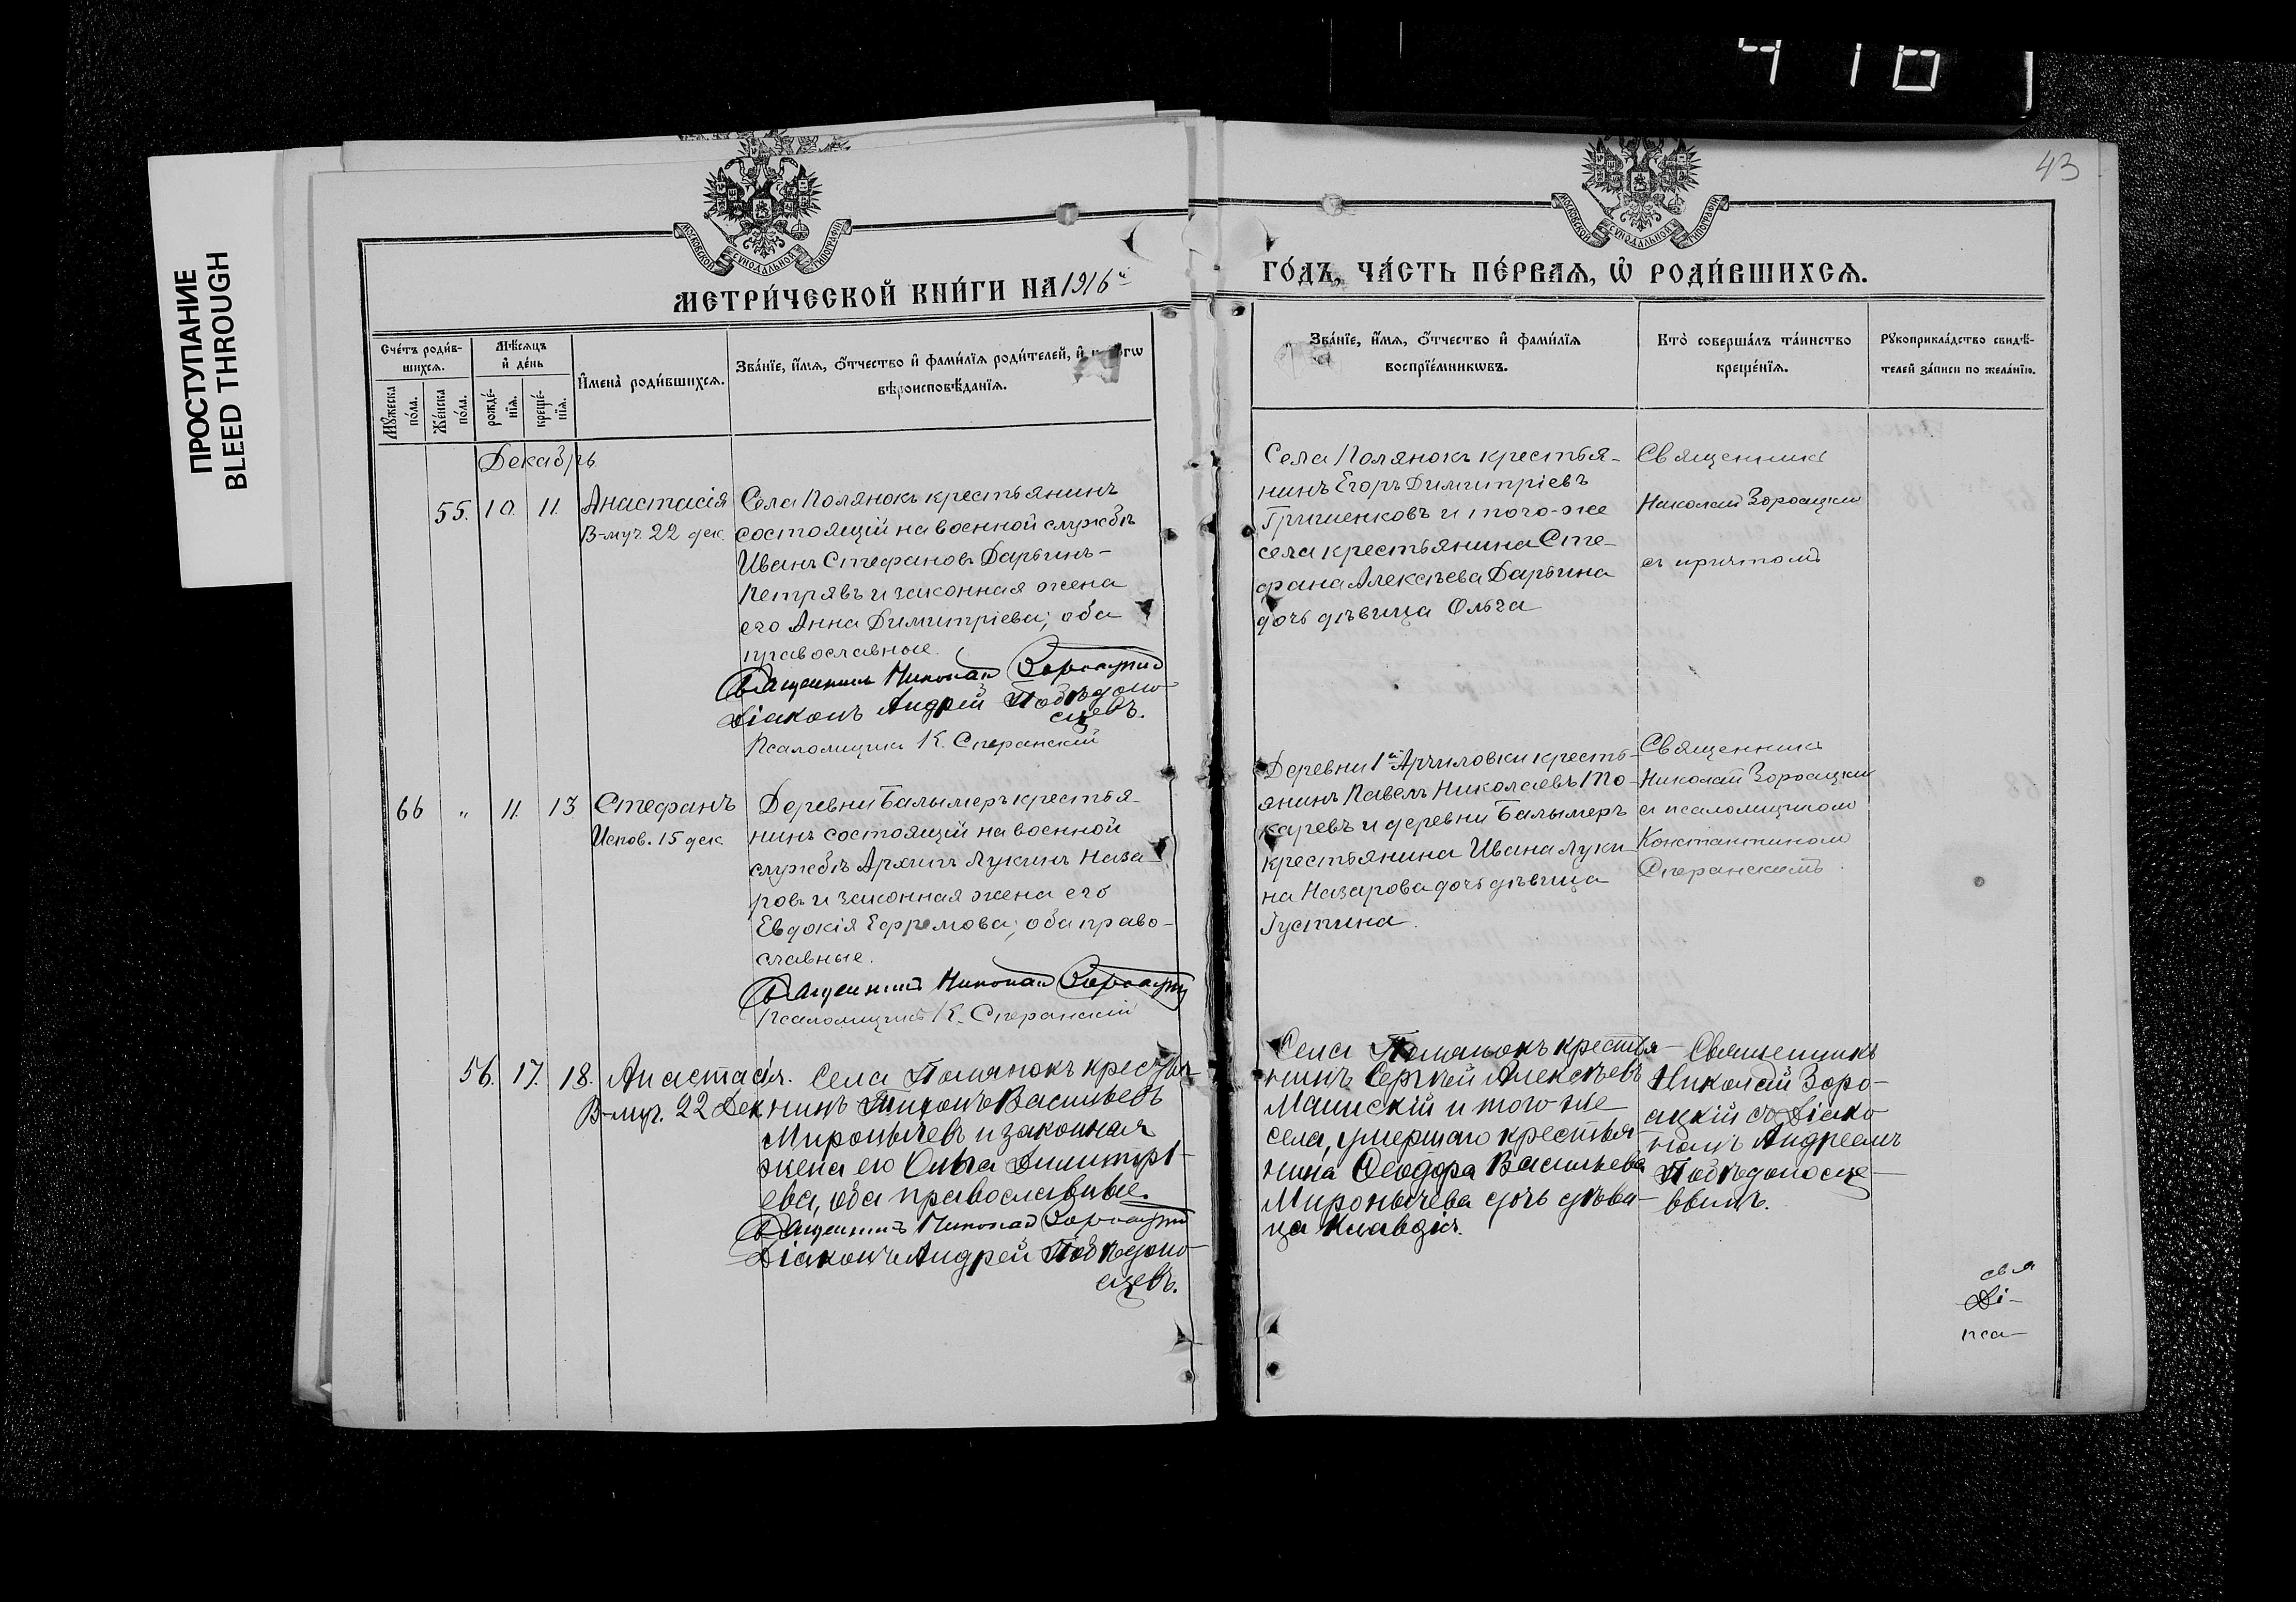 416
ПРОСТУПАНИЕ
BLEED THROUGH
43
МОСКОВСКОЙ СѴНОДАЛЬНОЙ ТИПОГРАФІИ
МОСКОВСКОЙ СѴНОДАЛЬНОЙ ТИПОГРАФІИ
МЕТРИ́ЧЕСКОЙ КНИ́ГИ НА 1916й
ГО́ДЪ, ЧА́СТЬ ПЕ́РВАЯ, Ѡ҆ РОДИ́ВШИХСЯ.
Сче́тъ роди́в-
шихся.
Мꙋ́жеска по́ла.
Же́нска по́ла.
Мѣ́сяцъ
и҆ де́нь
рожде́-
нїя.
креще́-
нїя.
И҆мена̀ роди́вшихся.
Зва́нїе, и҆́мя, ѻ҆́тчество и҆ фами́лїя роди́телей, и҆
вѣроисповѣ́данїя.
Зва́нїе, и҆́мя, ѻ҆́тчество и҆ фами́лїя
воспрїе́мникѡвъ.
Кто̀ соверша́лъ та́инство
креще́нїя.
Рꙋкоприкла́дство свидѣ́-
телей за́писи по жела́нїю.
Декабрь
55. 10. 11. Анастасія
В-муч 22 дек.
Села Полянокъ крестьянинъ
состоящій на военной службѣ
Иванъ Стефановъ Дарьинъ-
Петряевъ и законная жена
его Анна Димитріева; оба
православные.
Священникъ Николай Зороацкій
Діаконъ Андрей Побѣдоно-
сцевъ.
Псаломщикъ К. Сперанскій
Села Полянокъ крестья-
нинъ Егоръ Димитріевъ
Гришенковъ и того-же
села крестьянина Сте-
фана Алексѣева Дарьина
дочь дѣвица Ольга
Священникъ
Николай Зороацкій
съ причтомъ
66 " 11. 13. Стефанъ
Испов. 15 дек.
Деревни Балымеръ крестья-
нинъ состоящій на военной
службѣ Архипъ Лукинъ Наза-
ровъ и законная жена его
Евдокія Ефремова; оба право-
славные.
Священникъ Николай Зороацкій
Псаломщикъ К. Сперанскій
Деревни 1й Арчиловки кресть-
янинъ Павелъ Николаевъ То-
каревъ и деревни Балымеръ
крестьянина Ивана Луки-
на Назарова дочь дѣвица
Іустина.
Священникъ
Николай Зороацкій
съ псаломщикомъ
Константиномъ
Сперанскимъ.
56. 17. 18. Анастасія.
В-муч. 22 Дек.
Села Полянокъ крестья-
нинъ Тихонъ Васильевъ
Миронычевъ и законная
жена его Ольга Димитрі-
ева, оба православные.
Священникъ Николай Зороацкій
Діаконъ Андрей Побѣдоно-
сцевъ.
Села Полянокъ крестья-
нинъ Сергѣй Алексѣевъ
Маинскій и того же
села, умершаго крестья-
нина Ѳеодора Васильева
Миронычева дочь дѣви-
ца Клавдія.
Священникъ
Николай Зоро-
ацкій съ Діако-
номъ Андреемъ
Побѣдоносце-
вымъ.
свя
Ді-
пса-